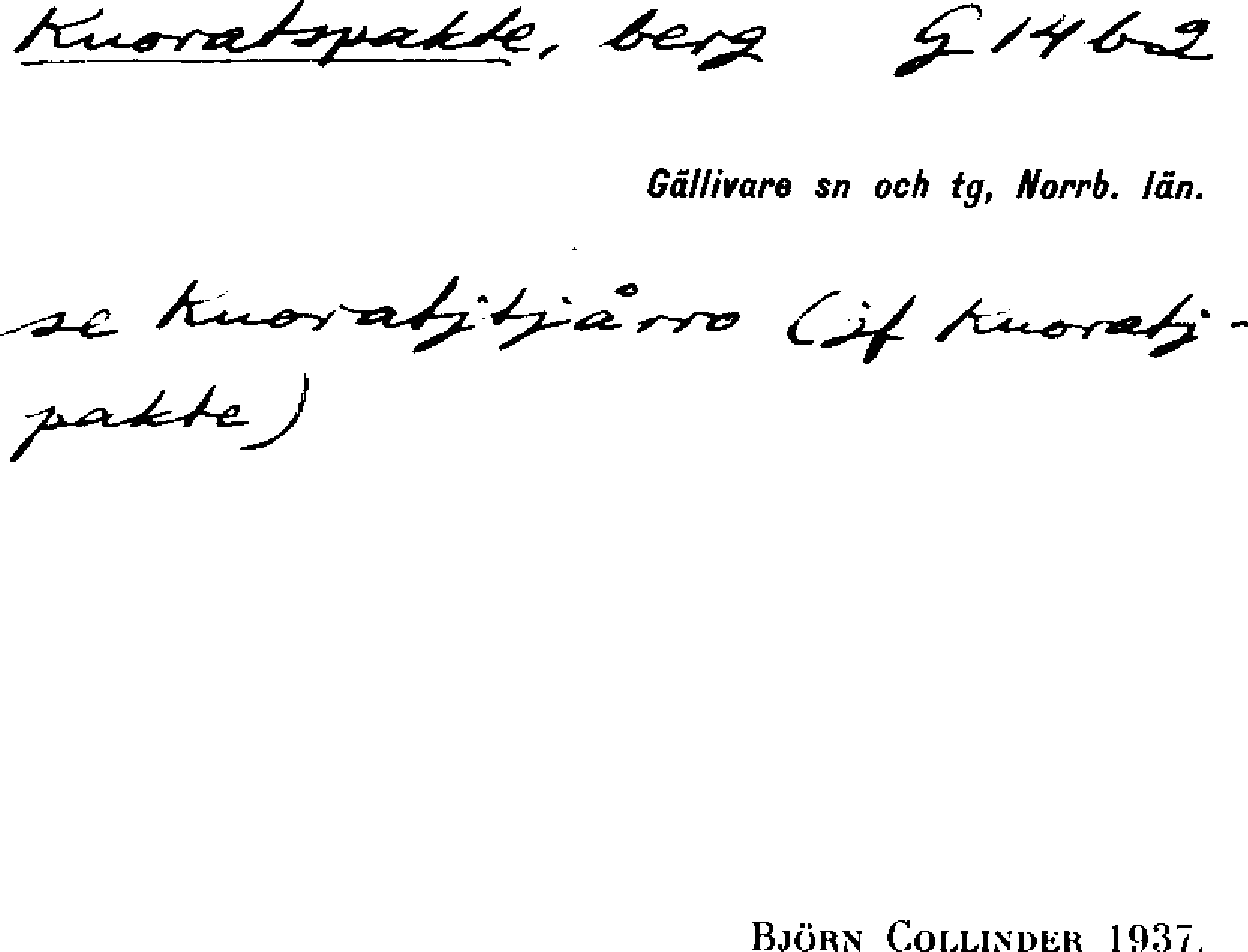 Kuoratspakte, berg G 14 b 2
Gällivare sn och tg, Norrb. län.
se Kuoratjtjårro (jf Kuoratj-
pakte)
BJÖRN COLLINDER 1937.